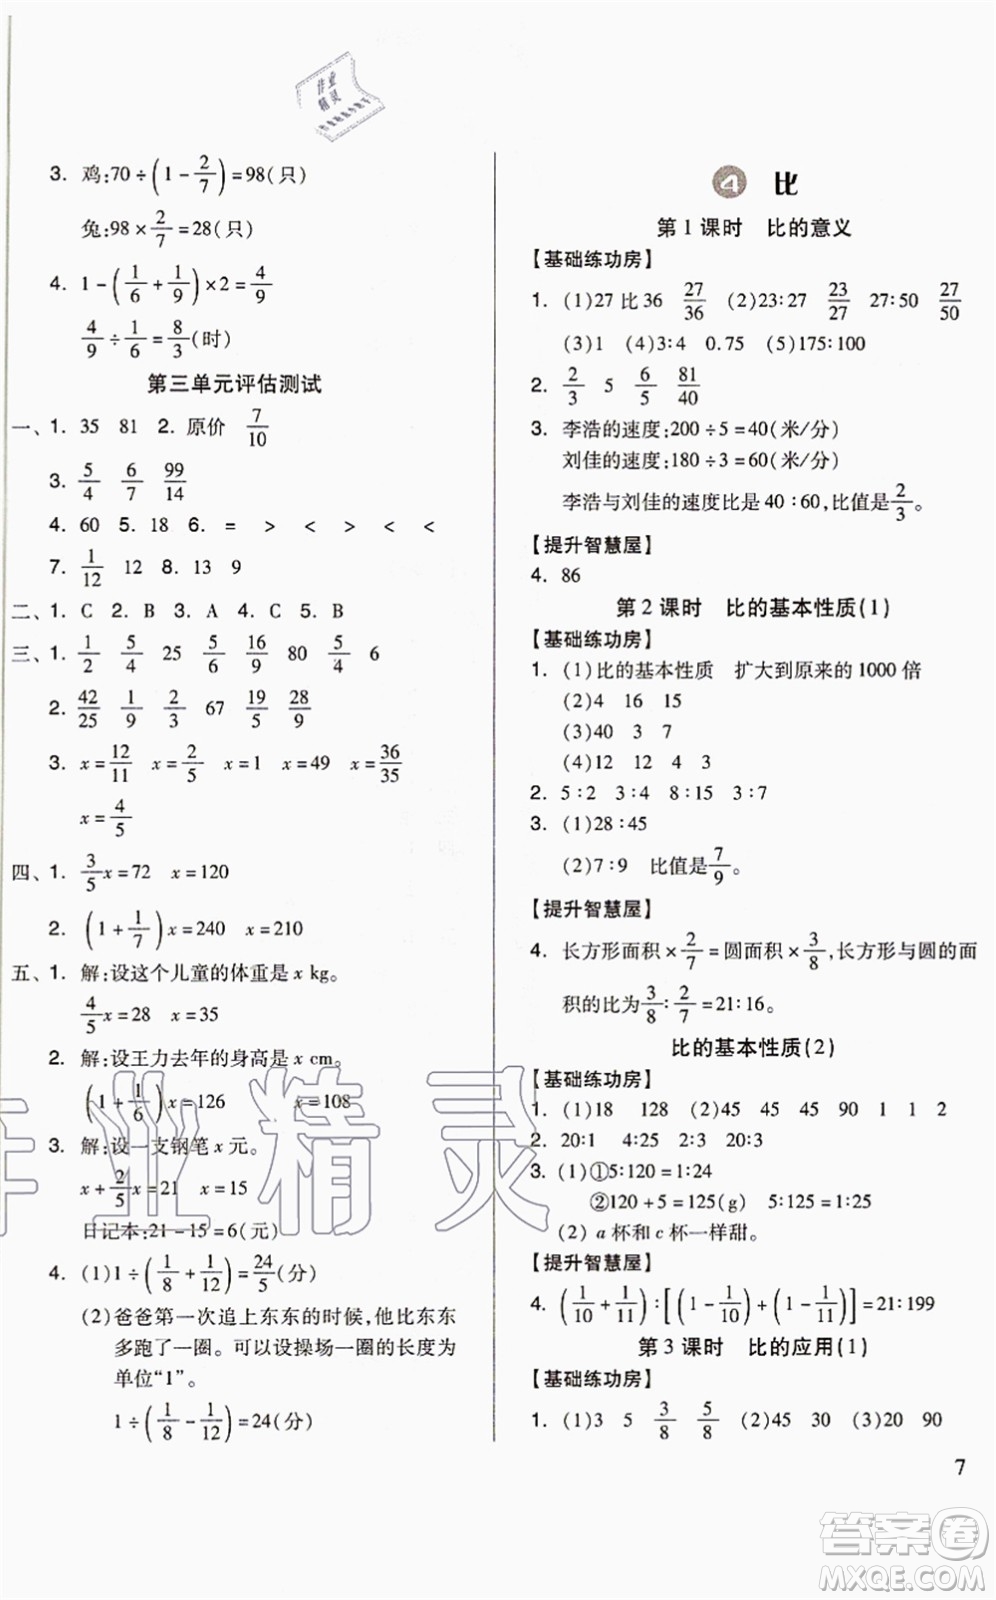 作业
精灵
3. 鸡:70÷(1-2/7)=98(只)
兔:98×2/7=28(只)
4. 1-(1/6+1/9)×2=4/9
4/9÷1/6=8/3(时)
第三单元评估测试
一、1. 35 81 2. 原价 7/10
3. 5/4 6/7 99/14
4. 60 5. 18 6. = > < > < <
7. 1/12 12 8. 13 9
二、1. C 2. B 3. A 4. C 5. B
三、1. 1/2 5/4 25 5/6 16/9 80 5/4 6
2. 42/25 1/9 2/3 67 19/5 28/9
3. x=12/11 x=2/5 x=1 x=49 x=36/35
x=4/5
四、1. 3/5x=72 x=120
2. (1+1/7)x=240 x=210
五、1. 解:设这个儿童的体重是 x kg。
4/5x=28 x=35
2. 解:设王力去年的身高是 x cm。
(1+1/6)x=126 x=108
3. 解:设一支钢笔 x 元。
x+2/5x=21 x=15
日记本:21-15=6(元)
4. (1)1÷(1/8+1/12)=24/5(分)
(2)爸爸第一次追上东东的时候,他比东东
多跑了一圈。可以设操场一圈的长度为
单位“1”。
1÷(1/8-1/12)=24(分)
4 比
第 1 课时 比的意义
【基础练功房】
1. (1)27 比 36 27/36 (2)23∶27 23/27 27∶50 27/50
(3)1 (4)3∶4 0.75 (5)175∶100
2. 2/3 5 6/5 81/40
3. 李浩的速度:200÷5=40(米/分)
刘佳的速度:180÷3=60(米/分)
李浩与刘佳的速度比是 40∶60,比值是2/3。
【提升智慧屋】
4. 86
第 2 课时 比的基本性质(1)
【基础练功房】
1. (1)比的基本性质 扩大到原来的 1000 倍
(2)4 16 15
(3)40 3 7
(4)12 12 4 3
2. 5∶2 3∶4 8∶15 3∶7
3. (1)28∶45
(2)7∶9 比值是7/9。
【提升智慧屋】
4. 长方形面积×2/7=圆面积×3/8,长方形与圆的面
积的比为3/8∶2/7=21∶16。
比的基本性质(2)
【基础练功房】
1. (1)18 128 (2)45 45 45 90 1 1 2
2. 20∶1 4∶25 2∶3 2∶1
3. (1)①5∶120=1∶24
②120+5=125(g) 5∶125=1∶25
(2) a 杯和 c 杯一样甜。
【提升智慧屋】
4. (1/10+1/11)∶[(1-1/10)+(1-1/11)]=21∶199
第 3 课时 比的应用(1)
【基础练功房】
1. (1)3 5 3/8 5/8 (2)45 30 (3)20 90
7
作业精灵
答案卷
MXQE.COM